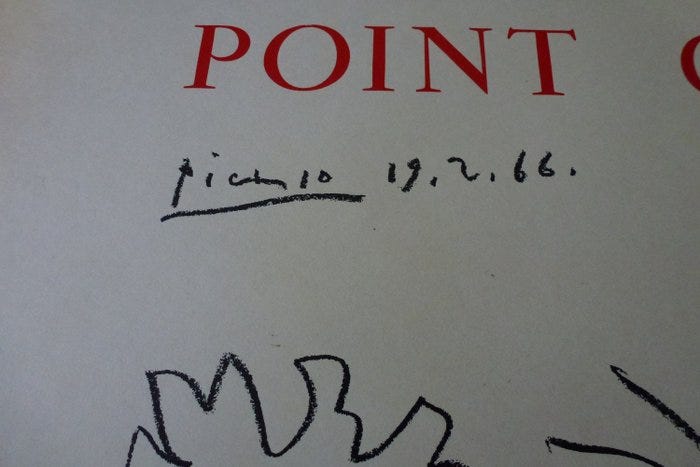 POINT
Picasso 19.2.66.